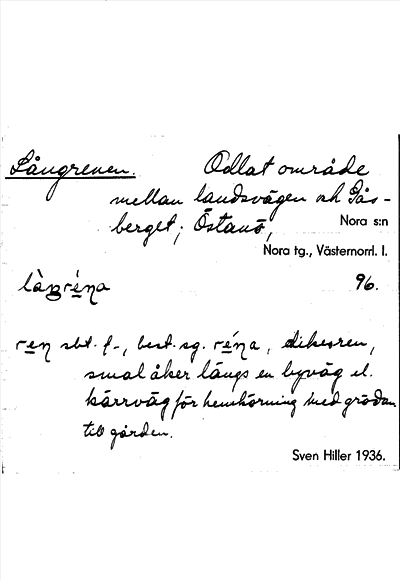 Långrenen. Odlat område
mellan landsvägen och Gås-
berget; Östanö, Nora s:n
Nora tg., Västernorrl. l.
làŋréna 96.
ren sbt. f., best. sg. réna, dikesren,
smal åker längs en byväg el.
kärrväg för hemkörning med grödan
till gården.
Sven Hiller 1936.